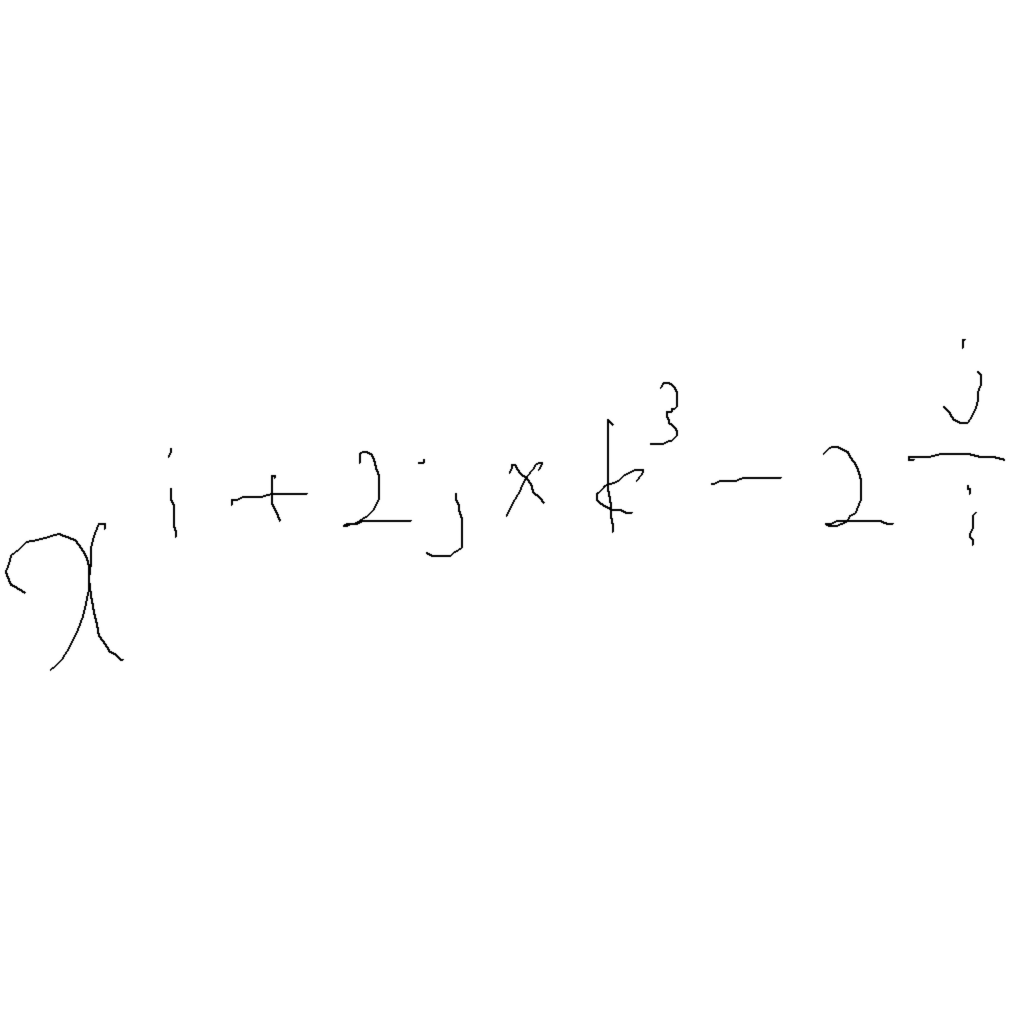 x^i + 2j × k^3 - 2^{\frac{j}{i}}